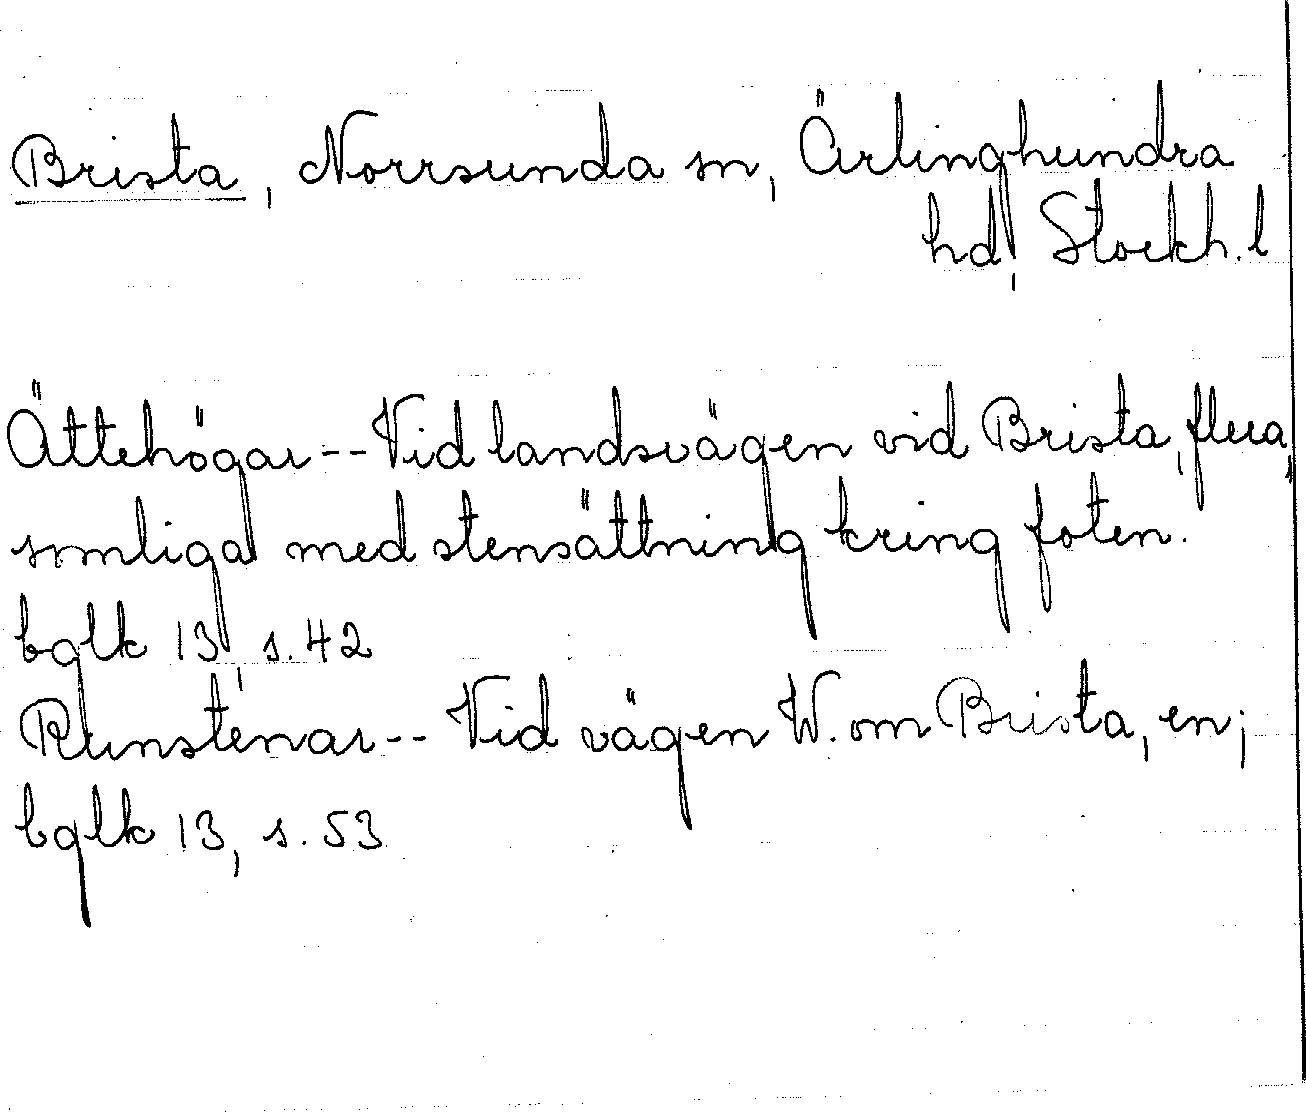 Brista, Norrsunda sn, Ärlinghundra
hd, Stockh. l
Ättehögar -- Vid landsvägen vid Brista, flera,
somliga med stensättning kring foten.
bglk 13, s. 42
Runstenar -- Vid vägen W. om Brista, en;
bglk 13, s. 53